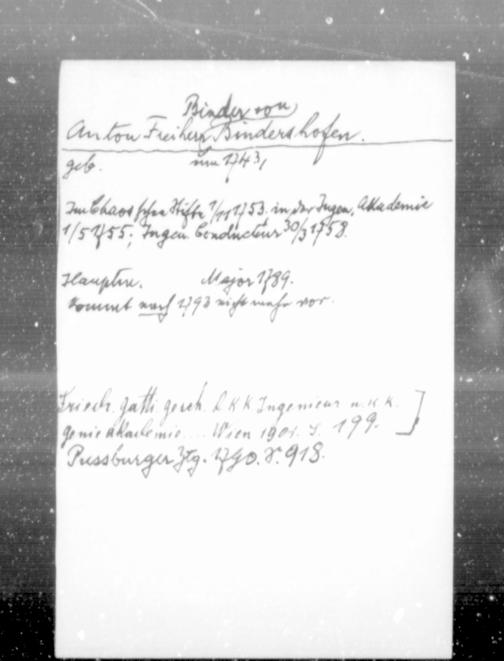 Binder von
Anton Freiherr Bindershofen.
geb. um 1743,
Im Chaos'schen Stifte 1/11 1753. in der Ingen. Akademie
1/5 1755; Ingen. Conducteur 30/3 1758.
Hauptm. Major 1789.
kommt nach 1793 nicht mehr vor.
Friedr. Gatti gesch. d. k k Ingenieur u. k. k.
genie Akademie ... Wien 1901. S. 199.]
Pressburger Ztg. 1790. S. 918.